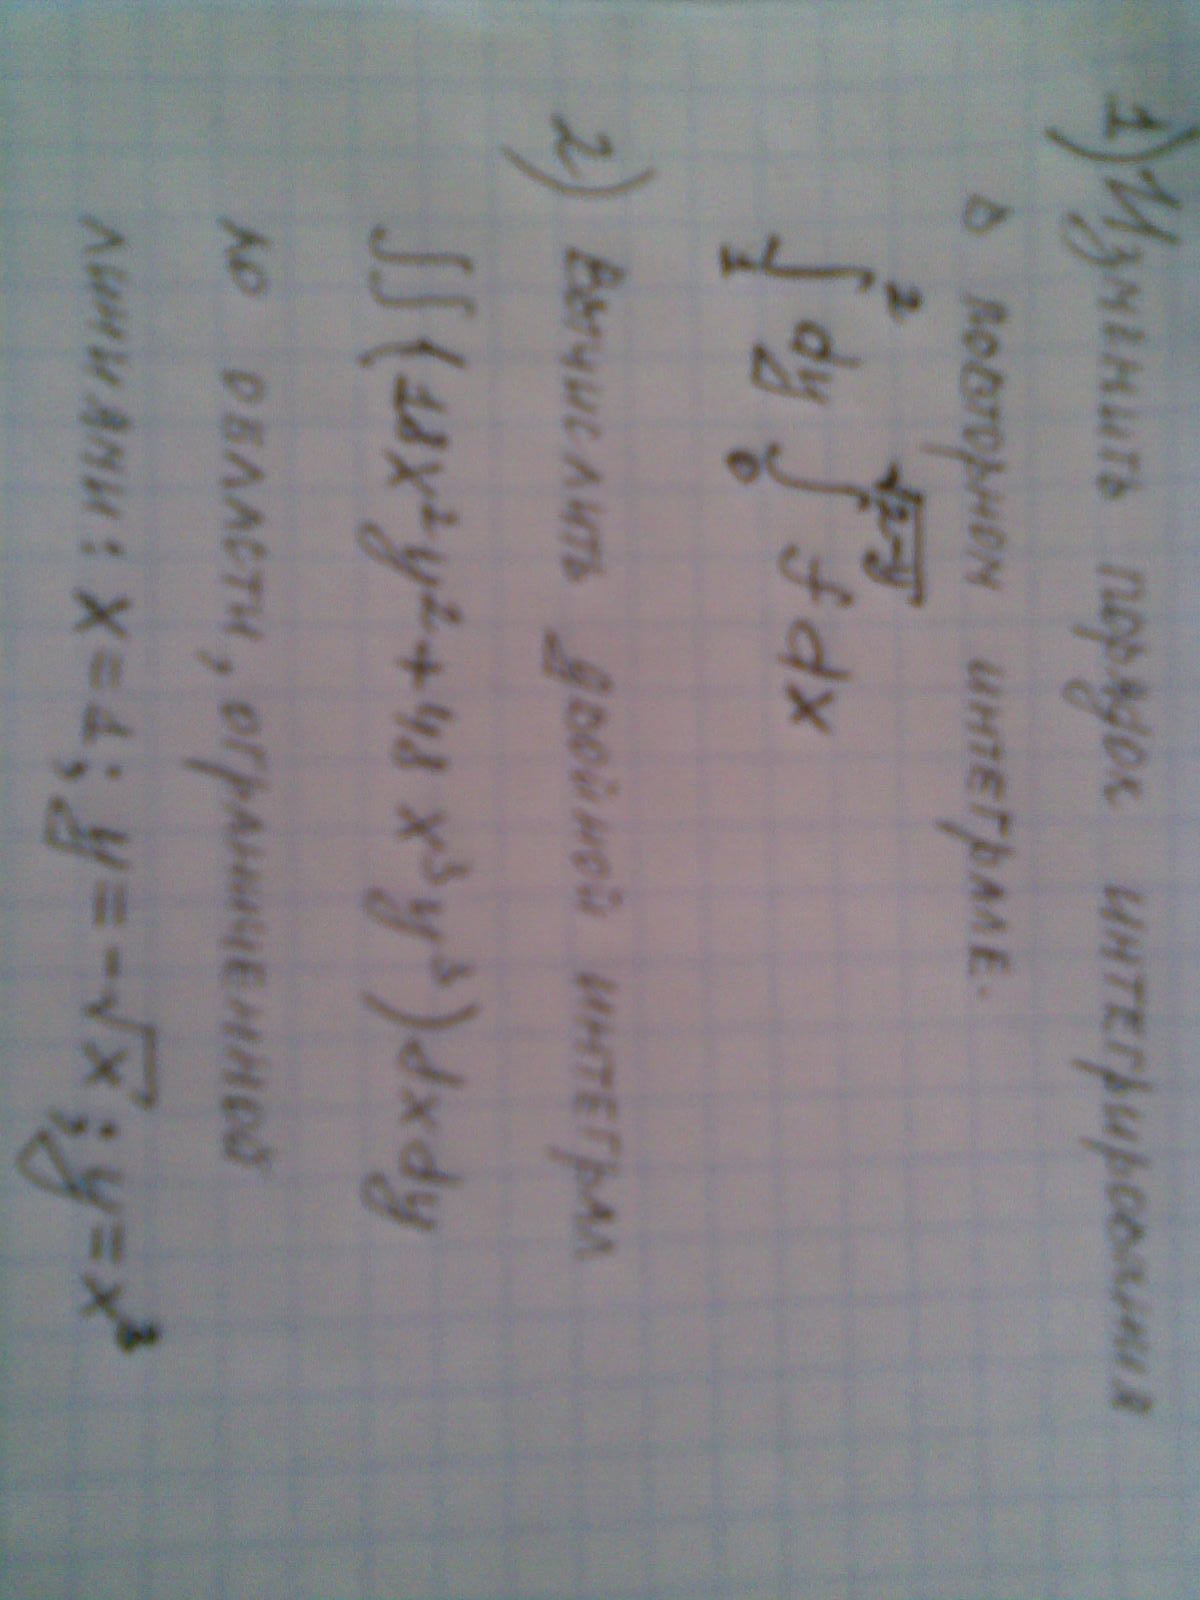 1) Изменить порядок интегрирования
в повторном интеграле.
∫₁² dy ∫₀^√(2-y) f dx
2) Вычислить двойной интеграл
∫∫(18x²y²+48x³y³)dxdy
по области, ограниченной
линиями: x=1; y=-√x; y=x³